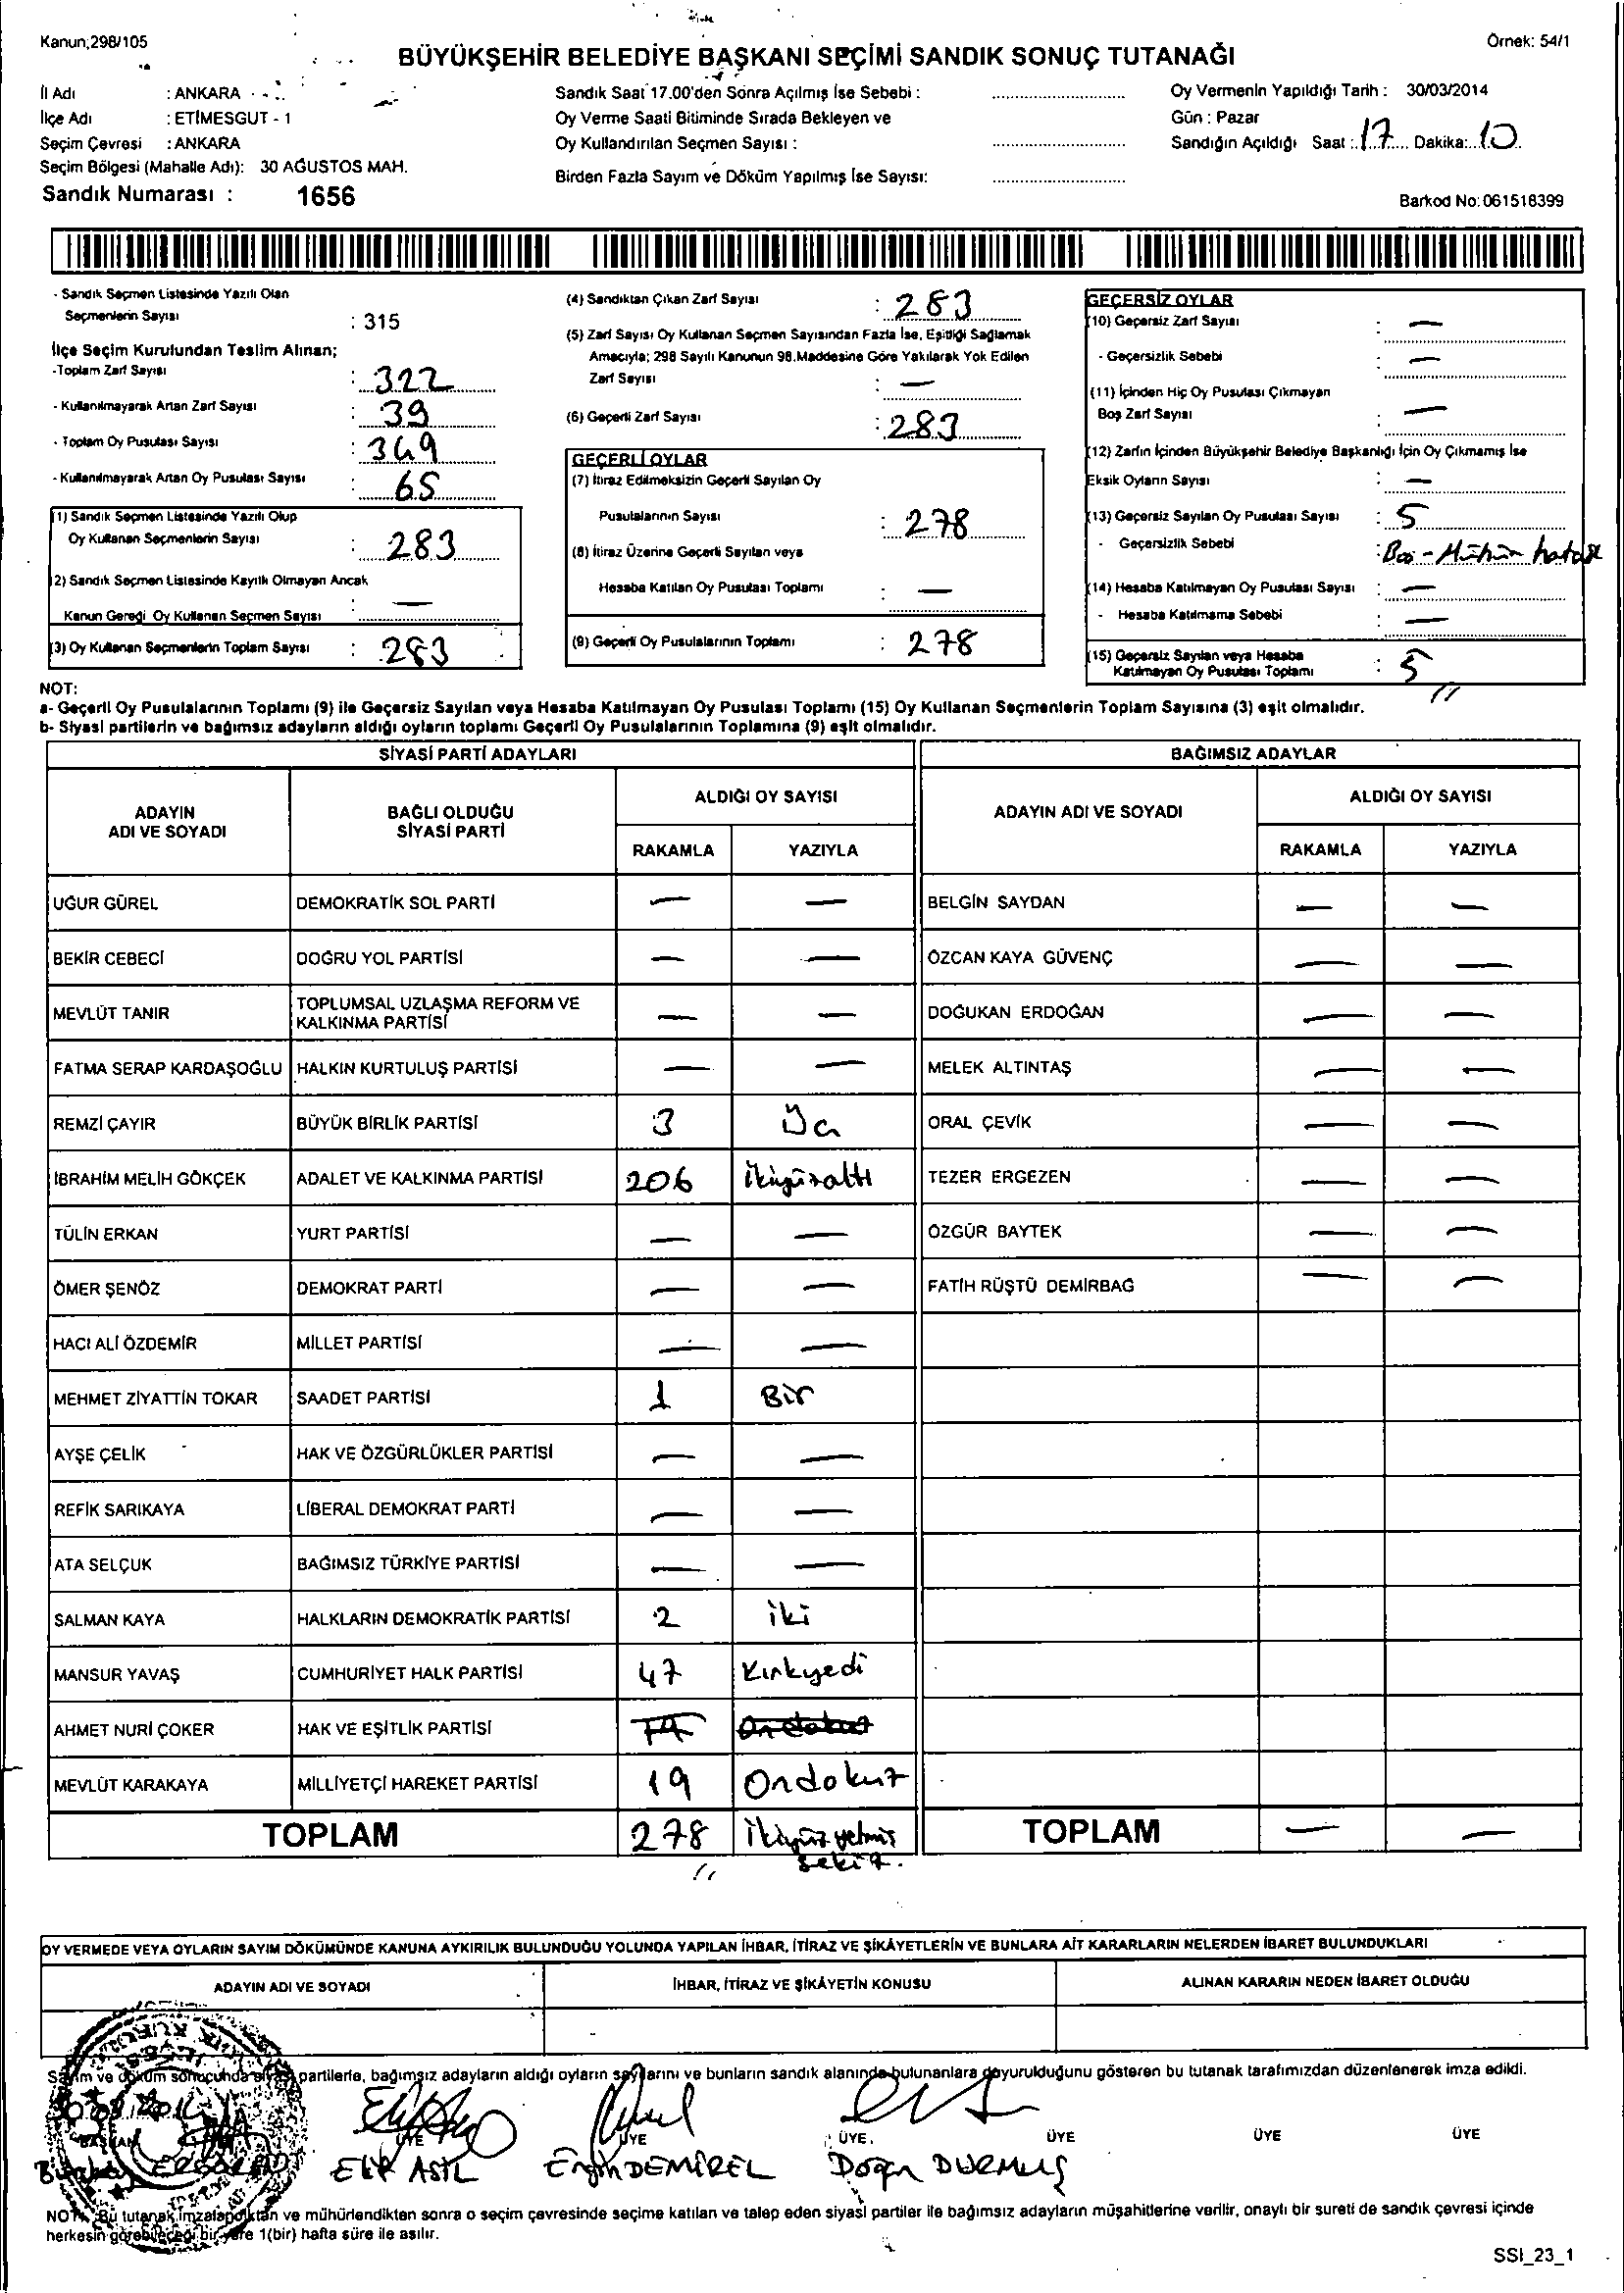 Kanun;298/105
Örnek: 54/1
BÜYÜKŞEHİR BELEDİYE BAŞKANI SEÇİMİ SANDIK SONUÇ TUTANAĞI
İl Adı : ANKARA
İlçe Adı : ETİMESGUT - 1
Seçim Çevresi : ANKARA
Seçim Bölgesi (Mahalle Adı): 30 AĞUSTOS MAH.
Sandık Numarası : 1656
Sandık Saat 17.00'den Sonra Açılmış İse Sebebi :
Oy Verme Saati Bitiminde Sırada Bekleyen ve
Oy Kullandırılan Seçmen Sayısı :
Birden Fazla Sayım ve Döküm Yapılmış İse Sayısı:
Oy Vermenin Yapıldığı Tarih : 30/03/2014
Gün : Pazar
Sandığın Açıldığı Saat : 17 Dakika: 10
Barkod No:061518399
- Sandık Seçmen Listesinde Yazılı Olan
Seçmenlerin Sayısı : 315
İlçe Seçim Kurulundan Teslim Alınan;
-Toplam Zarf Sayısı : 322
- Kullanılmayarak Artan Zarf Sayısı : 39
- Toplam Oy Pusulası Sayısı : 349
- Kullanılmayarak Artan Oy Pusulası Sayısı : 65
(1) Sandık Seçmen Listesinde Yazılı Olup
Oy Kullanan Seçmenlerin Sayısı : 283
2) Sandık Seçmen Listesinde Kayıtlı Olmayan Ancak
Kanun Gereği Oy Kullanan Seçmen Sayısı : —
(3) Oy Kullanan Seçmenlerin Toplam Sayısı : 283
(4) Sandıktan Çıkan Zarf Sayısı : 283
(5) Zarf Sayısı Oy Kullanan Seçmen Sayısından Fazla İse, Eşitliği Sağlamak
Amacıyla; 298 Sayılı Kanunun 98.Maddesine Göre Yakılarak Yok Edilen
Zarf Sayısı : —
(6) Geçerli Zarf Sayısı : 283
GEÇERLİ OYLAR
(7) İtiraz Edilmeksizin Geçerli Sayılan Oy
Pusulalarının Sayısı : 278
(8) İtiraz Üzerine Geçerli Sayılan veya
Hesaba Katılan Oy Pusulası Toplamı : —
(9) Geçerli Oy Pusulalarının Toplamı : 278
GEÇERSİZ OYLAR
(10) Geçersiz Zarf Sayısı : —
- Geçersizlik Sebebi : —
(11) İçinden Hiç Oy Pusulası Çıkmayan
Boş Zarf Sayısı : —
(12) Zarfın İçinden Büyükşehir Belediye Başkanlığı İçin Oy Çıkmamış İse
Eksik Oyların Sayısı : —
(13) Geçersiz Sayılan Oy Pusulası Sayısı : 5
- Geçersizlik Sebebi : Boş - Mühür hatası
(14) Hesaba Katılmayan Oy Pusulası Sayısı : —
- Hesaba Katılmama Sebebi : —
(15) Geçersiz Sayılan veya Hesaba
Katılmayan Oy Pusulası Toplamı : 5
NOT:
a- Geçerli Oy Pusulalarının Toplamı (9) ile Geçersiz Sayılan veya Hesaba Katılmayan Oy Pusulası Toplamı (15) Oy Kullanan Seçmenlerin Toplam Sayısına (3) eşit olmalıdır.
b- Siyasi partilerin ve bağımsız adayların aldığı oyların toplamı Geçerli Oy Pusulalarının Toplamına (9) eşit olmalıdır.
SİYASİ PARTİ ADAYLARI
BAĞIMSIZ ADAYLAR
ADAYIN ADI VE SOYADI
BAĞLI OLDUĞU SİYASİ PARTİ
ALDIĞI OY SAYISI
RAKAMLA YAZIYLA
ADAYIN ADI VE SOYADI
ALDIĞI OY SAYISI
RAKAMLA YAZIYLA
UĞUR GÜREL DEMOKRATİK SOL PARTİ — — BELGİN SAYDAN — —
BEKİR CEBECİ DOĞRU YOL PARTİSİ — — ÖZCAN KAYA GÜVENÇ — —
MEVLÜT TANIR TOPLUMSAL UZLAŞMA REFORM VE KALKINMA PARTİSİ — — DOĞUKAN ERDOĞAN — —
FATMA SERAP KARDAŞOĞLU HALKIN KURTULUŞ PARTİSİ — — MELEK ALTINTAŞ — —
REMZİ ÇAYIR BÜYÜK BİRLİK PARTİSİ 3 Üç ORAL ÇEVİK — —
İBRAHİM MELİH GÖKÇEK ADALET VE KALKINMA PARTİSİ 206 ikiyüzaltı TEZER ERGEZEN — —
TÜLİN ERKAN YURT PARTİSİ — — ÖZGÜR BAYTEK — —
ÖMER ŞENÖZ DEMOKRAT PARTİ — — FATİH RÜŞTÜ DEMİRBAĞ — —
HACI ALİ ÖZDEMİR MİLLET PARTİSİ — —
MEHMET ZİYATTİN TOKAR SAADET PARTİSİ 1 Bir
AYŞE ÇELİK HAK VE ÖZGÜRLÜKLER PARTİSİ — —
REFİK SARIKAYA LİBERAL DEMOKRAT PARTİ — —
ATA SELÇUK BAĞIMSIZ TÜRKİYE PARTİSİ — —
SALMAN KAYA HALKLARIN DEMOKRATİK PARTİSİ 2 iki
MANSUR YAVAŞ CUMHURİYET HALK PARTİSİ 47 Kırkyedi
AHMET NURİ ÇOKER HAK VE EŞİTLİK PARTİSİ 19 Ondokuz
MEVLÜT KARAKAYA MİLLİYETÇİ HAREKET PARTİSİ 19 Ondokuz
TOPLAM 278 ikiyüz yetmiş sekiz. TOPLAM — —
OY VERMEDE VEYA OYLARIN SAYIM DÖKÜMÜNDE KANUNA AYKIRILIK BULUNDUĞU YOLUNDA YAPILAN İHBAR, İTİRAZ VE ŞİKÂYETLERİN VE BUNLARA AİT KARARLARIN NELERDEN İBARET BULUNDUKLARI
ADAYIN ADI VE SOYADI İHBAR, İTİRAZ VE ŞİKÂYETİN KONUSU ALINAN KARARIN NEDEN İBARET OLDUĞU
Sayım ve döküm sonucunda siyasi partilerle, bağımsız adayların aldığı oyların sayılarını ve bunların sandık alanında bulunanlara duyurulduğunu gösteren bu tutanak tarafımızdan düzenlenerek imza edildi.
BAŞKAN ÜYE ÜYE ÜYE ÜYE ÜYE ÜYE
Elif ASIL Engin DEMİREL Doğan DURMUŞ
NOT: Bu tutanak imzalandıktan ve mühürlendikten sonra o seçim çevresinde seçime katılan ve talep eden siyasi partiler ile bağımsız adayların müşahitlerine verilir, onaylı bir sureti de sandık çevresi içinde
herkesin görebileceği bir yere 1(bir) hafta süre ile asılır.
SSI_23_1